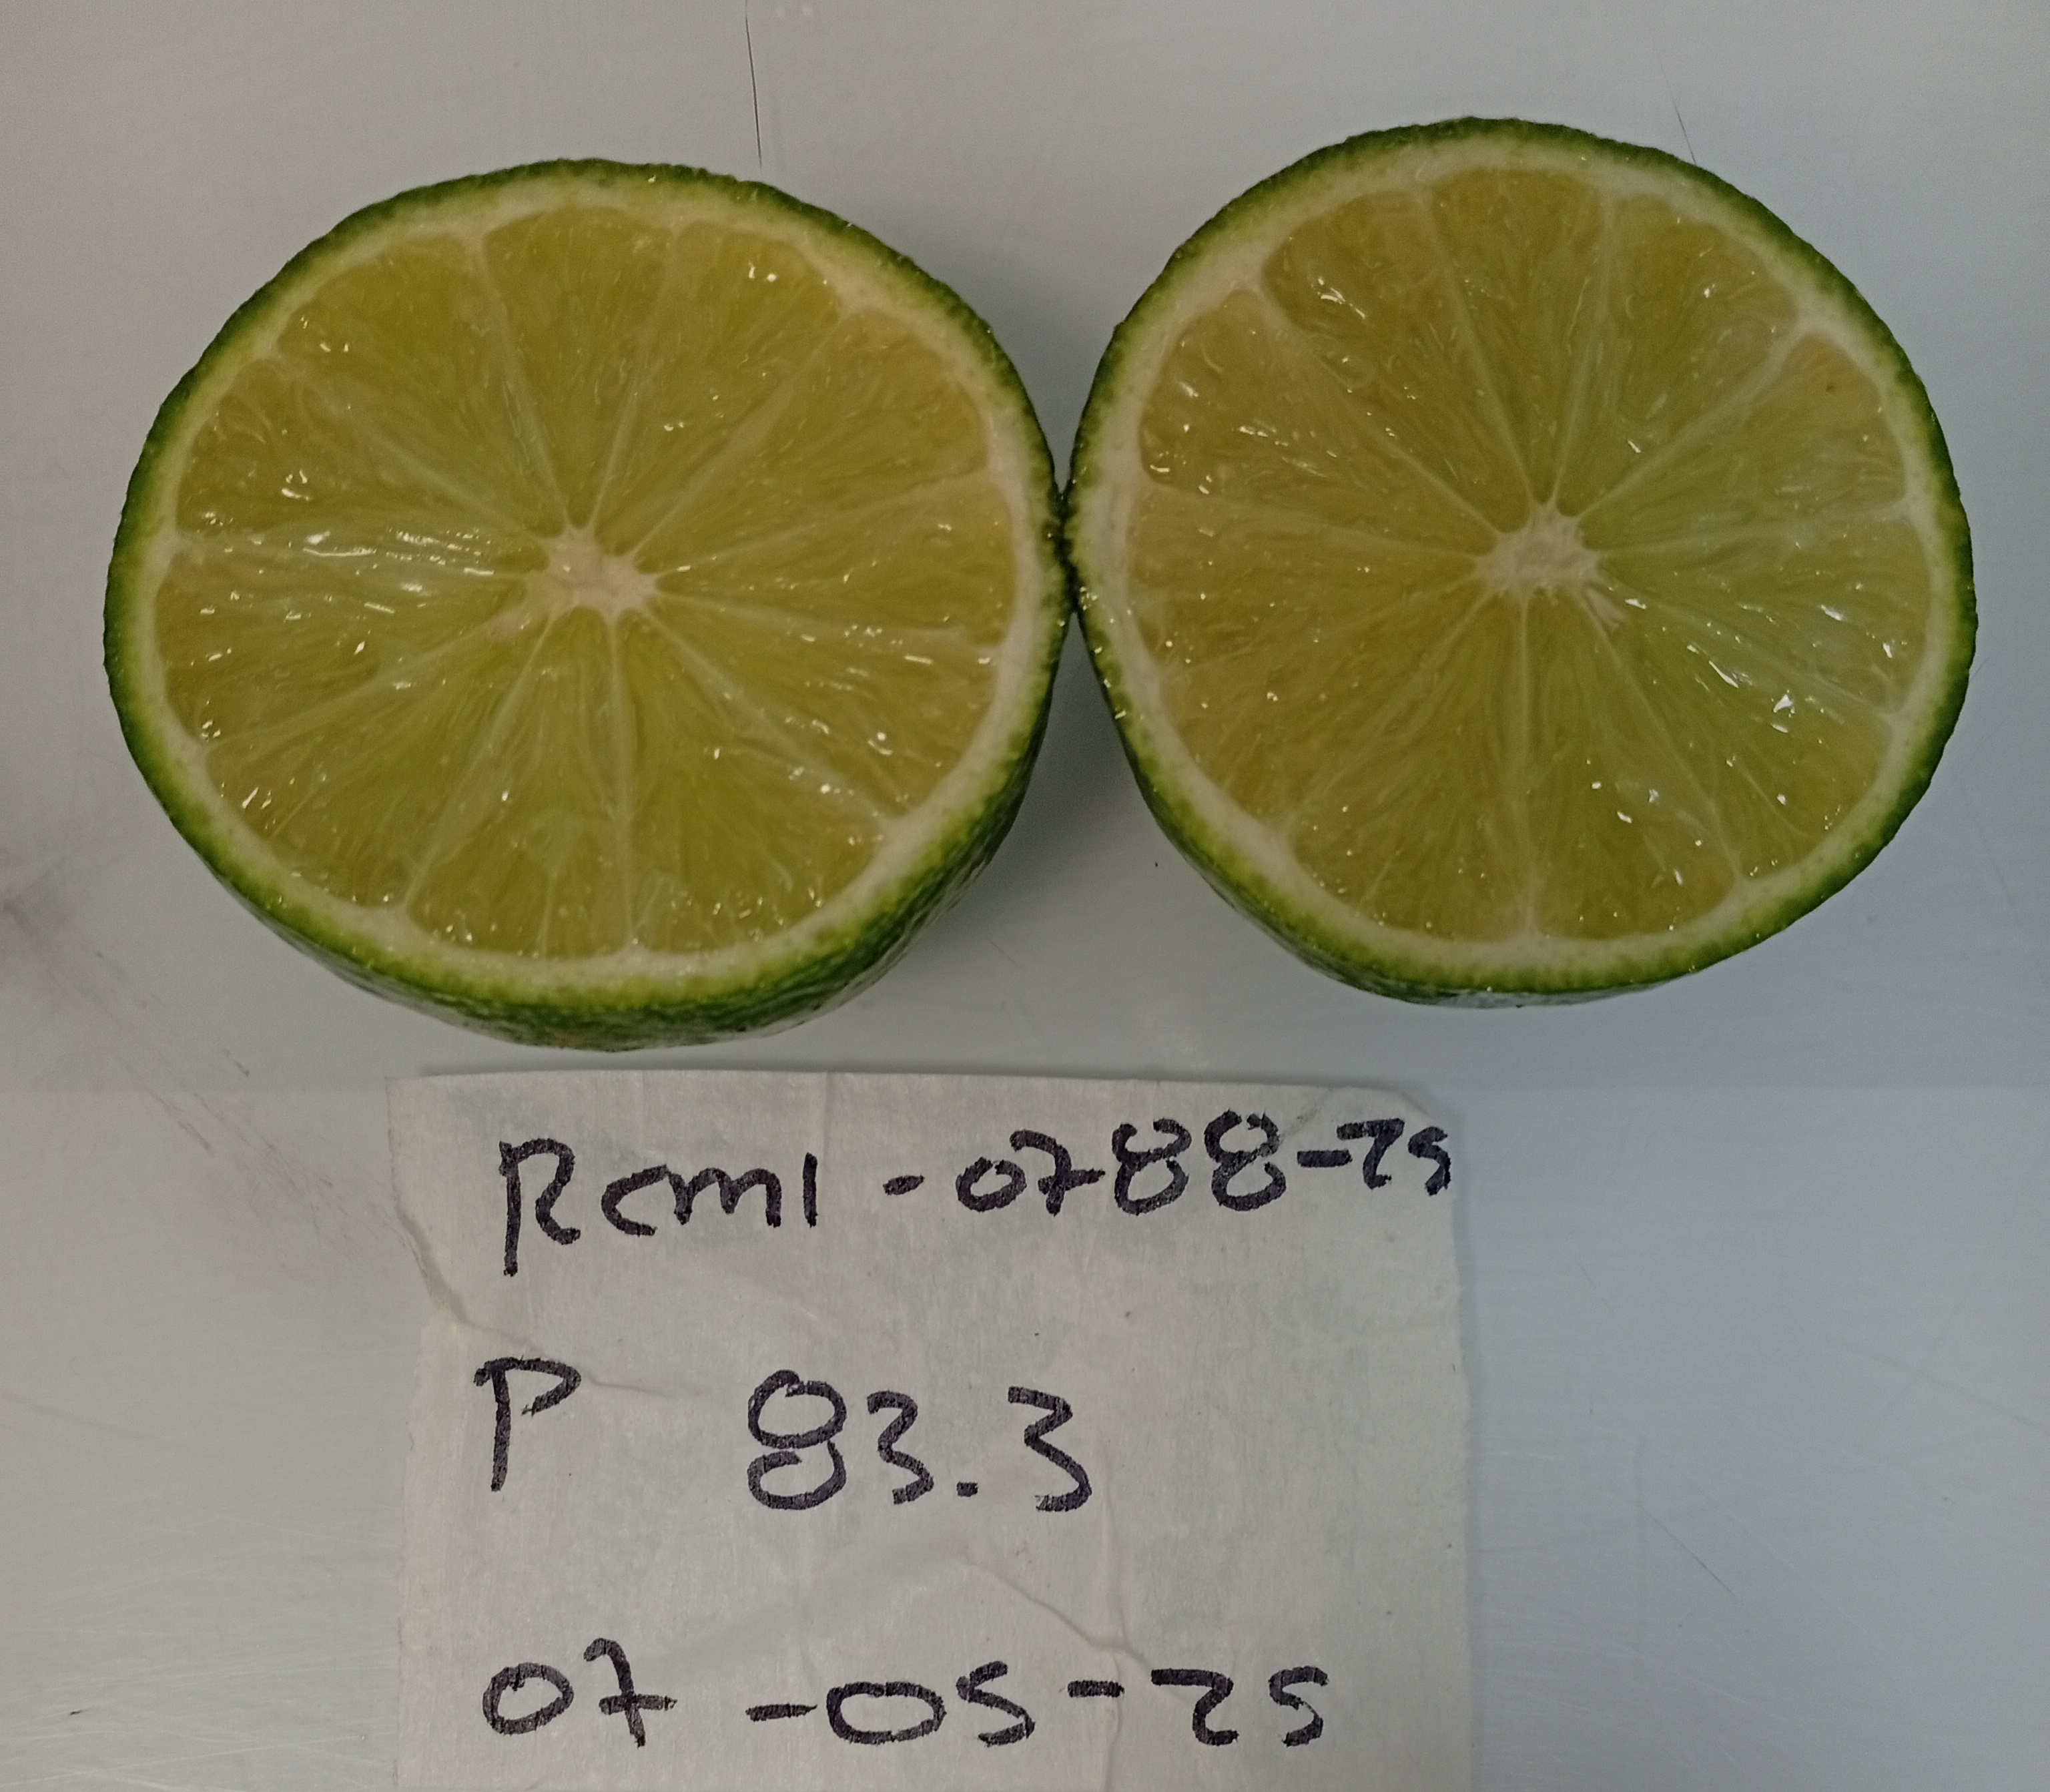 Rcml-0788-25
P 83.3
07-05-25